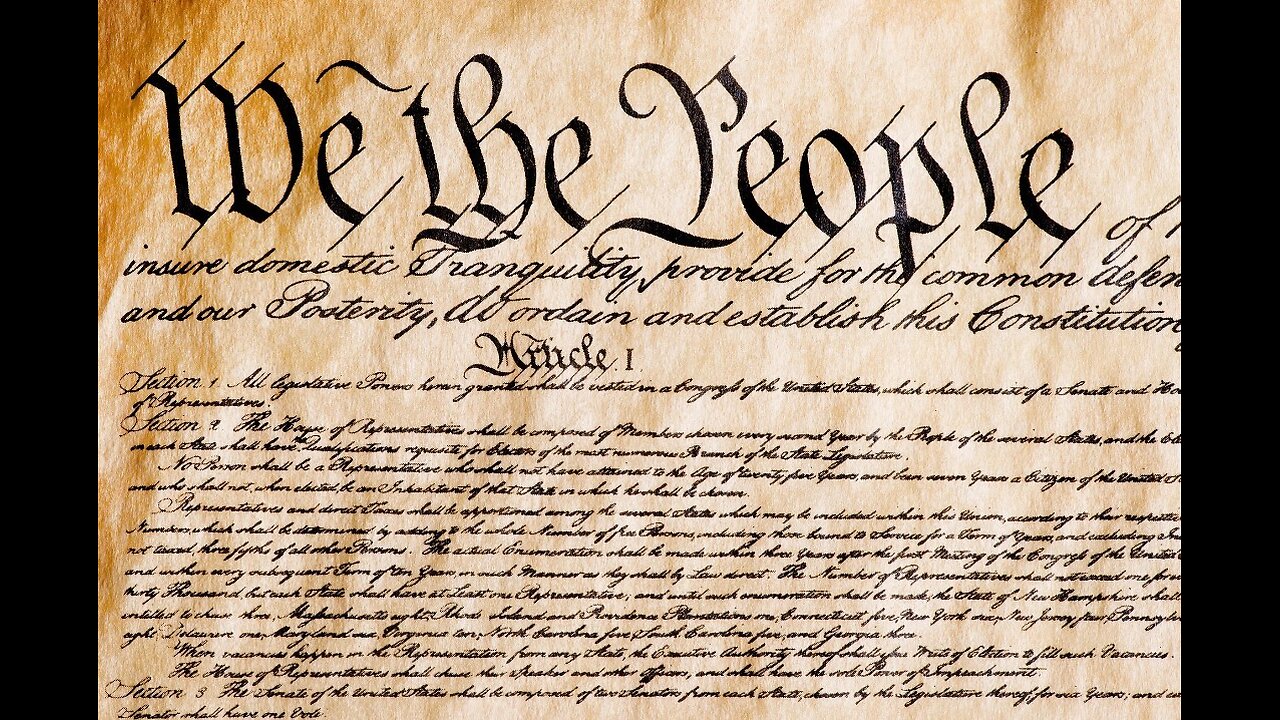 We the People of
insure domestic Tranquility, provide for the common defen
and our Posterity, do ordain and establish this Constitution
Article. I.
Section. 1. All legislative Powers herein granted shall be vested in a Congress of the United States, which shall consist of a Senate and Ho
of Representatives.
Section. 2. The House of Representatives shall be composed of Members chosen every second Year by the People of the several States, and the El
in each State shall have the Qualifications requisite for Electors of the most numerous Branch of the State Legislature.
No Person shall be a Representative who shall not have attained to the Age of twenty five Years, and been seven Years a Citizen of the United St
and who shall not, when elected, be an Inhabitant of that State in which he shall be chosen.
Representatives and direct Taxes shall be apportioned among the several States which may be included within this Union, according to their respective
Numbers, which shall be determined by adding to the whole Number of free Persons, including those bound to Service for a Term of Years, and excluding In
not taxed, three fifths of all other Persons. The actual Enumeration shall be made within three Years after the first Meeting of the Congress of the United
and within every subsequent Term of ten Years, in such Manner as they shall by Law direct. The Number of Representatives shall not exceed one for ev
thirty Thousand, but each State shall have at Least one Representative; and until such enumeration shall be made, the State of New Hampshire shall
entitled to chuse three, Massachusetts eight, Rhode Island and Providence Plantations one, Connecticut five, New York six, New Jersey four, Pennsylv
eight, Delaware one, Maryland six, Virginia ten, North Carolina five, South Carolina five, and Georgia three.
When vacancies happen in the Representation from any State, the Executive Authority thereof shall issue Writs of Election to fill such Vacancies.
The House of Representatives shall chuse their Speaker and other Officers; and shall have the sole Power of Impeachment.
Section. 3. The Senate of the United States shall be composed of two Senators from each State, chosen by the Legislature thereof, for six Years; and
Senator shall have one Vote.